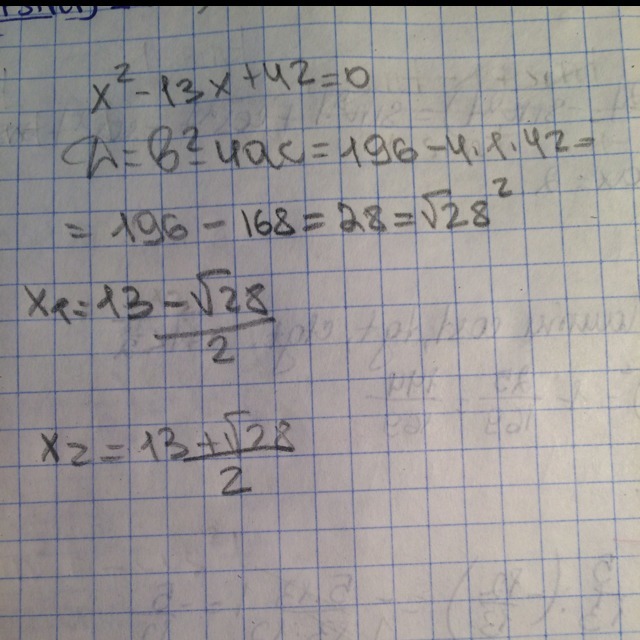 x²-13x+42=0
D=b²-4ac=196-4·1·42=
=196-168=28=√28²
x₁=13-√28/2
x₂=13+√28/2